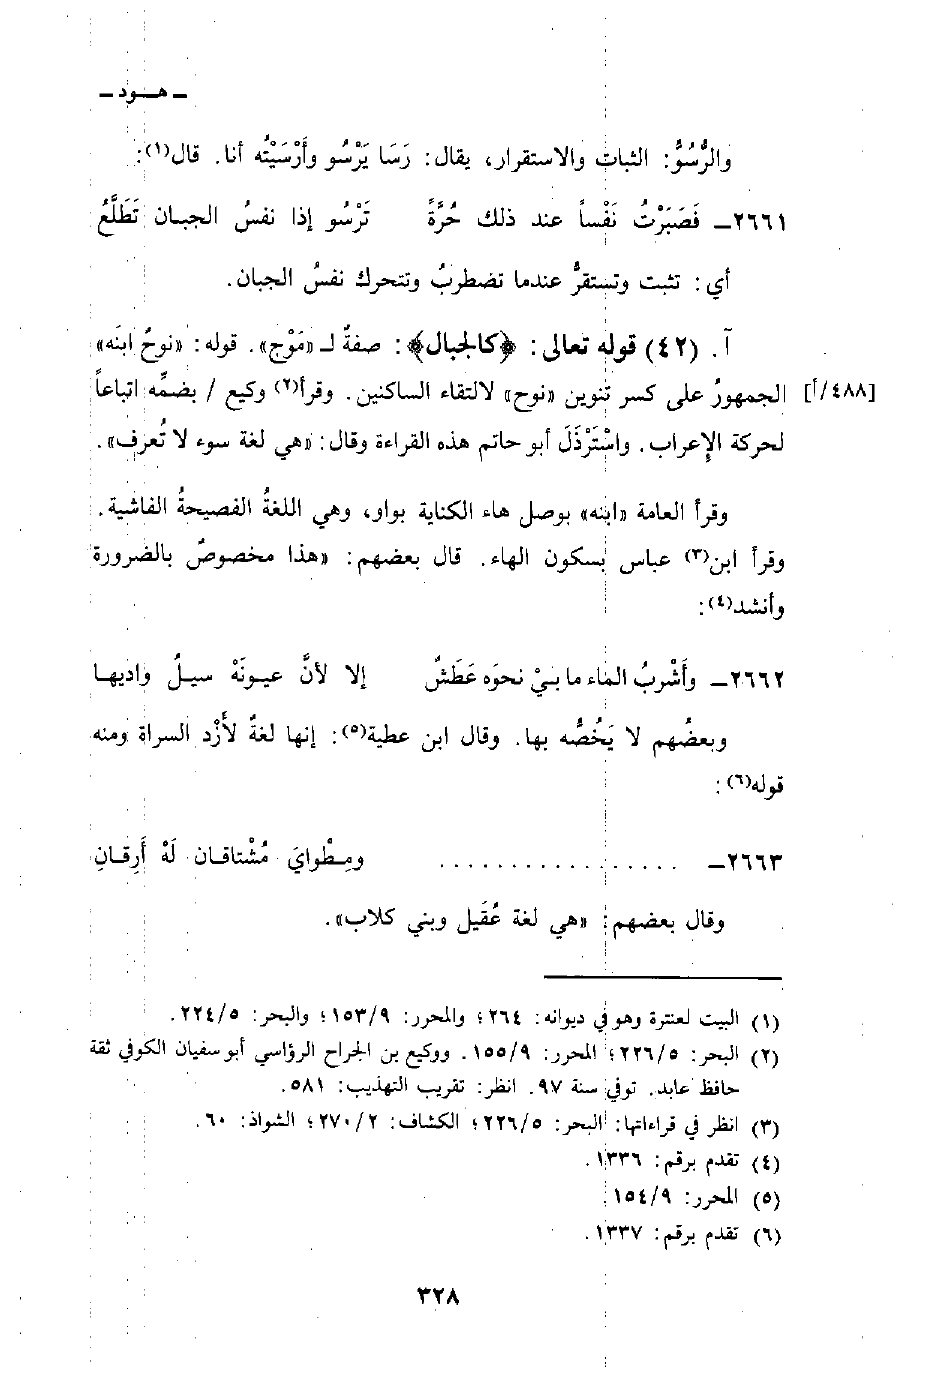 ـ هـــود ـ
والرُّسُوُّ: الثبات والاستقرار، يقال: رَسَا يَرْسُو وأَرْسَيْتُه أنا. قال(١):
٢٦٦١ـ فَصَبَرْتُ نَفْساً عند ذلك حُرَّةً تَرْسُو إذا نفسُ الجبـان تَطَلَّعُ
أي: تثبت وتستقرُّ عندما تضطربُ وتتحرك نفسُ الجبان.
آ. (٤٢) قوله تعالى: ﴿كالجبال﴾: صفةٌ لـ «مَوْج». قوله: «نوحٌ ابنَه»
الجمهورُ على كسر تنوين «نوح» لالتقاء الساكنين. وقرأ(٢) وكيع / بضمِّه اتباعاً [٤٨٨/أ]
لحركة الإِعراب. واسْتَرْذَلَ أبو حاتم هذه القراءة وقال: «هي لغة سوء لا تُعرف».
وقرأ العامة «ابنه» بوصل هاء الكناية بواو، وهي اللغةُ الفصيحةُ الفاشية.
وقرأ ابن(٣) عباس بسكون الهاء. قال بعضهم: «هذا مخصوصٌ بالضرورة
وأنشد(٤):
٢٦٦٢ـ وأَشْربُ الماء ما بيْ نحوَه عَطَشٌ إلا لأنَّ عيـونَهْ سيـلُ واديهـا
وبعضُهم لا يَخُصُّه بها. وقال ابن عطية(٥): إنها لغةٌ لأَزْد السراة ومنه
قوله(٦):
٢٦٦٣ـ . . . . . . . . . . . . . . . . . ومِـطْوايَ مُشْتاقـان لَهْ أَرِقـانِ
وقال بعضهم: «هي لغة عُقَيل وبني كلاب».
(١) البيت لعنترة وهو في ديوانه: ٢٦٤؛ والمحرر: ١٥٣/٩؛ والبحر: ٢٢٤/٥.
(٢) البحر: ٢٢٦/٥؛ المحرر: ١٥٥/٩. ووكيع بن الجراح الرؤاسي أبو سفيان الكوفي ثقة
حافظ عابد. توفي سنة ٩٧. انظر: تقريب التهذيب: ٥٨١.
(٣) انظر في قراءاتها: البحر: ٢٢٦/٥؛ الكشاف: ٢٧٠/٢؛ الشواذ: ٦٠.
(٤) تقدم برقم: ١٣٣٦.
(٥) المحرر: ١٥٤/٩.
(٦) تقدم برقم: ١٣٣٧.
٣٢٨